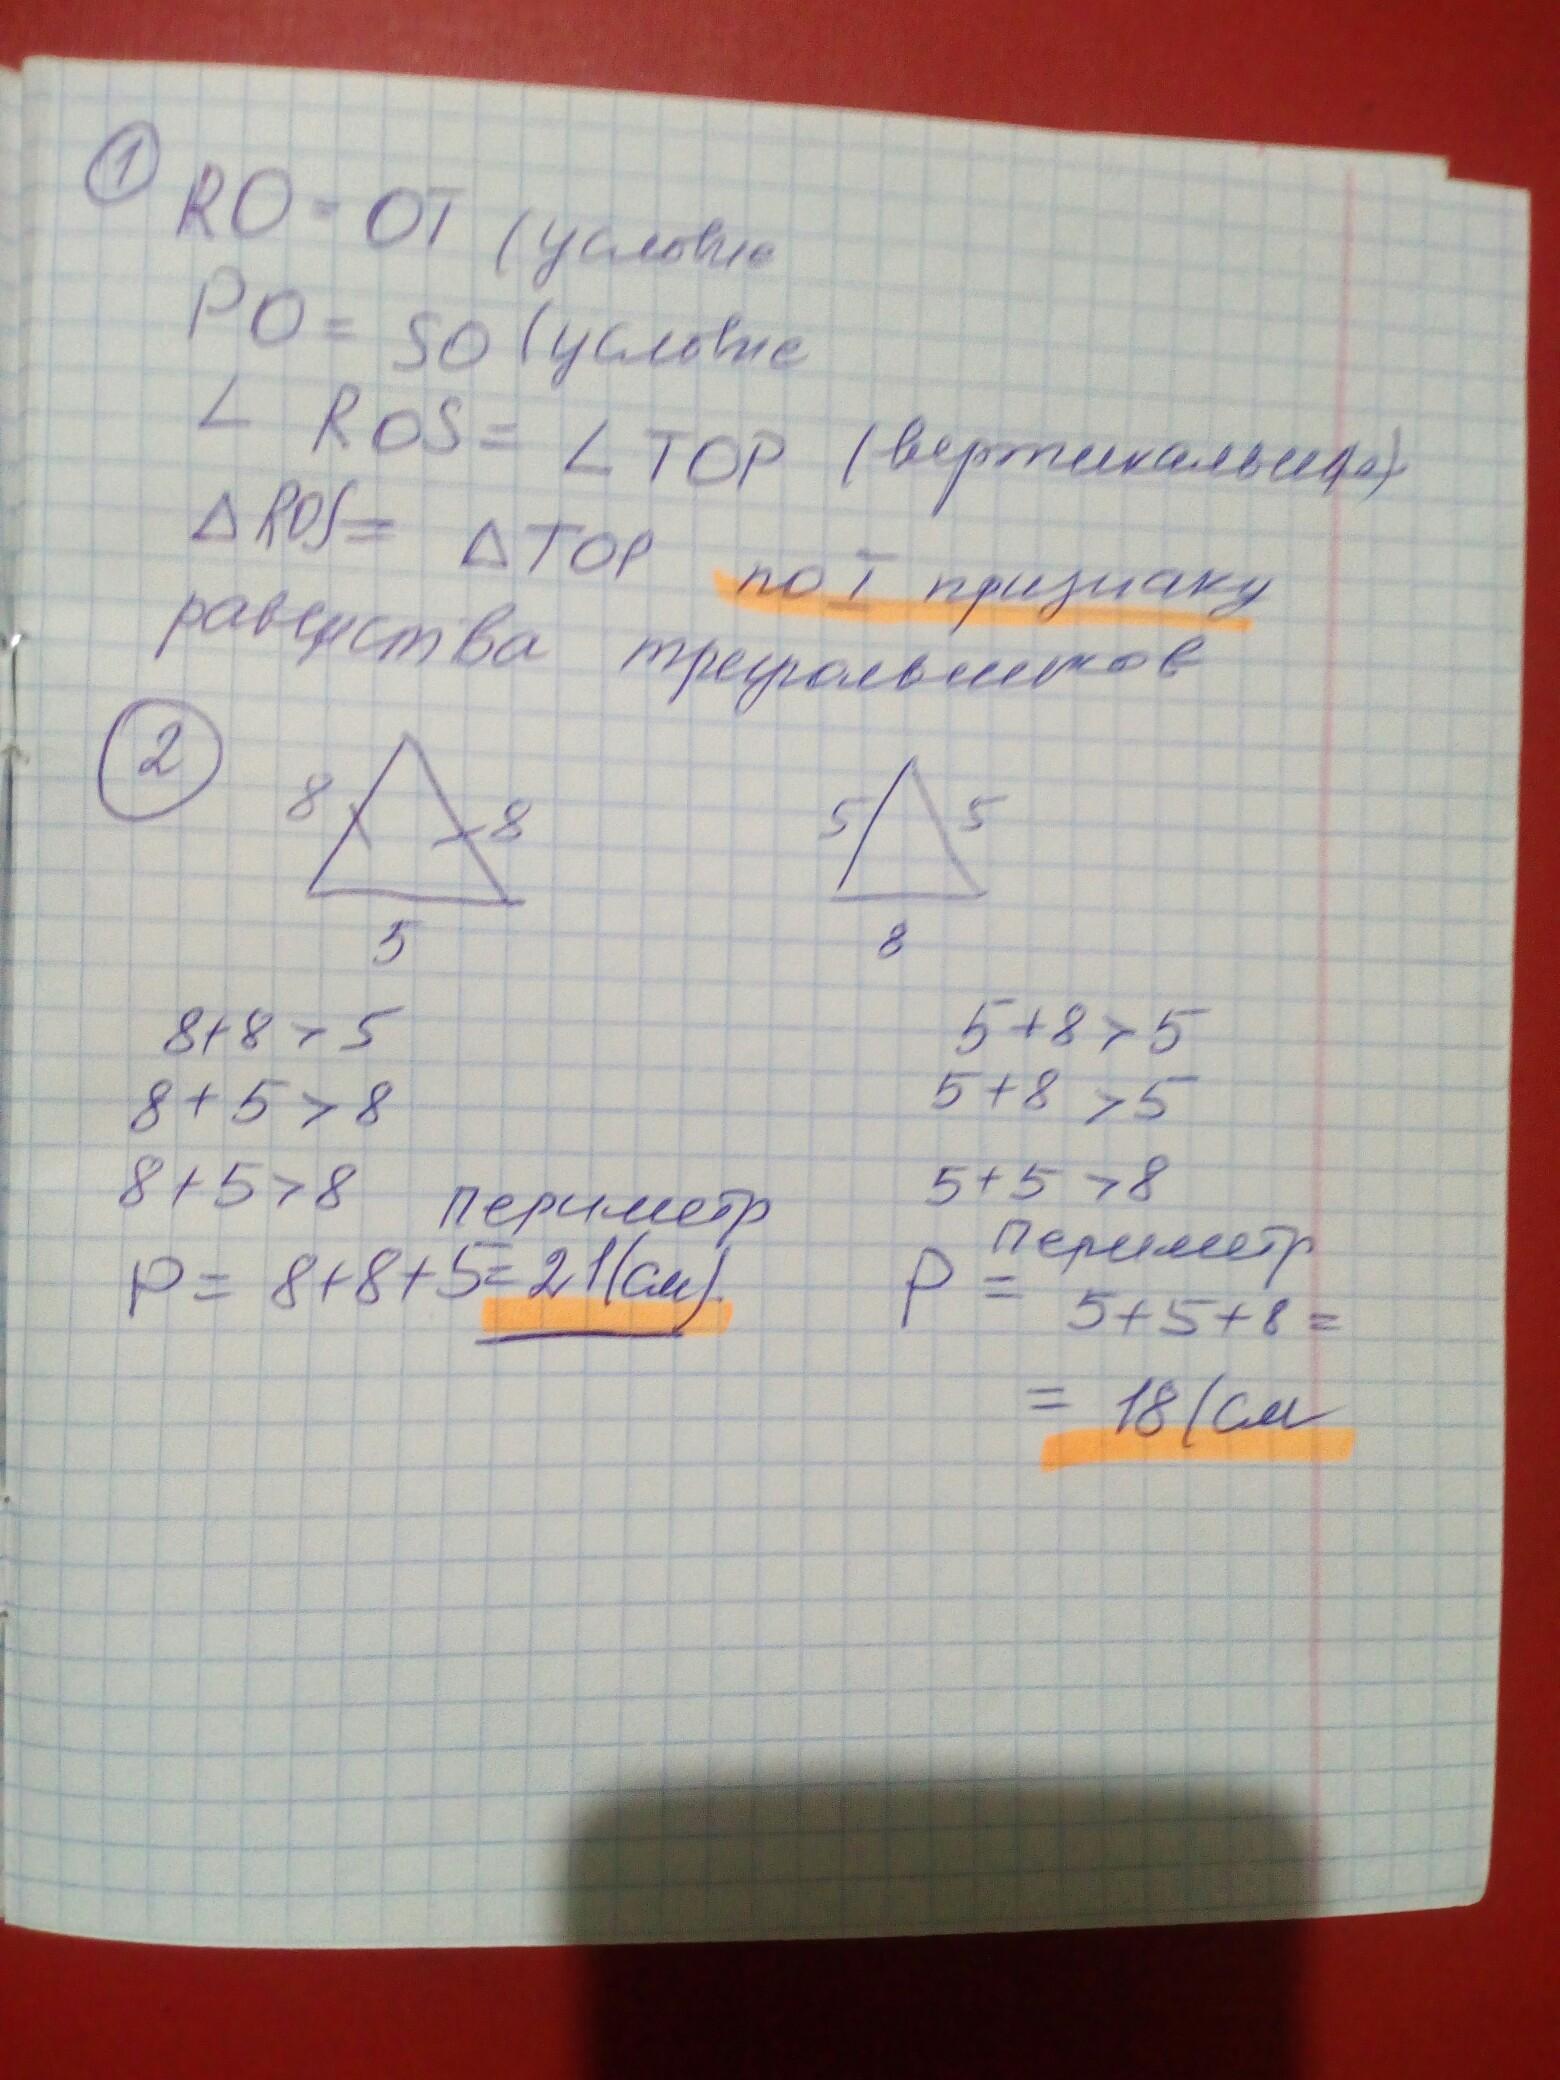 1
RO = OT (условие
PO = SO (условие
∠ ROS = ∠ TOP (вертикальные)
△ ROS = △ TOP по I признаку
равенства треугольников
2
8 8 5
5 5 8
8+8 > 5
8+5 > 8
8+5 > 8
периметр
P = 8+8+5 = 21 (см).
5+8 > 5
5+8 > 5
5+5 > 8
периметр
P = 5+5+8 =
= 18 (см